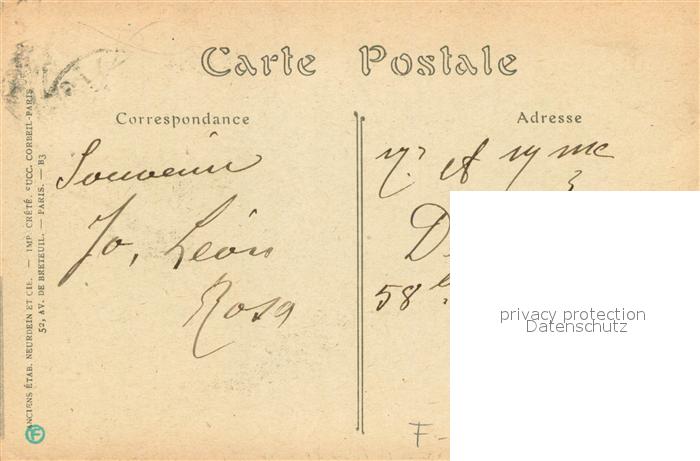 Carte Postale
Correspondance
Souvenir
Jo, Léon
Rosa
Adresse
Mr et Mme
D
58
privacy protection
Datenschutz
F-
ANCIENS ÉTAB. NEURDEIN ET CIE. — IMP. CRÉTÉ. SUCC. CORBEIL-PARIS
52, AV. DE BRETEUIL. — PARIS. — B3